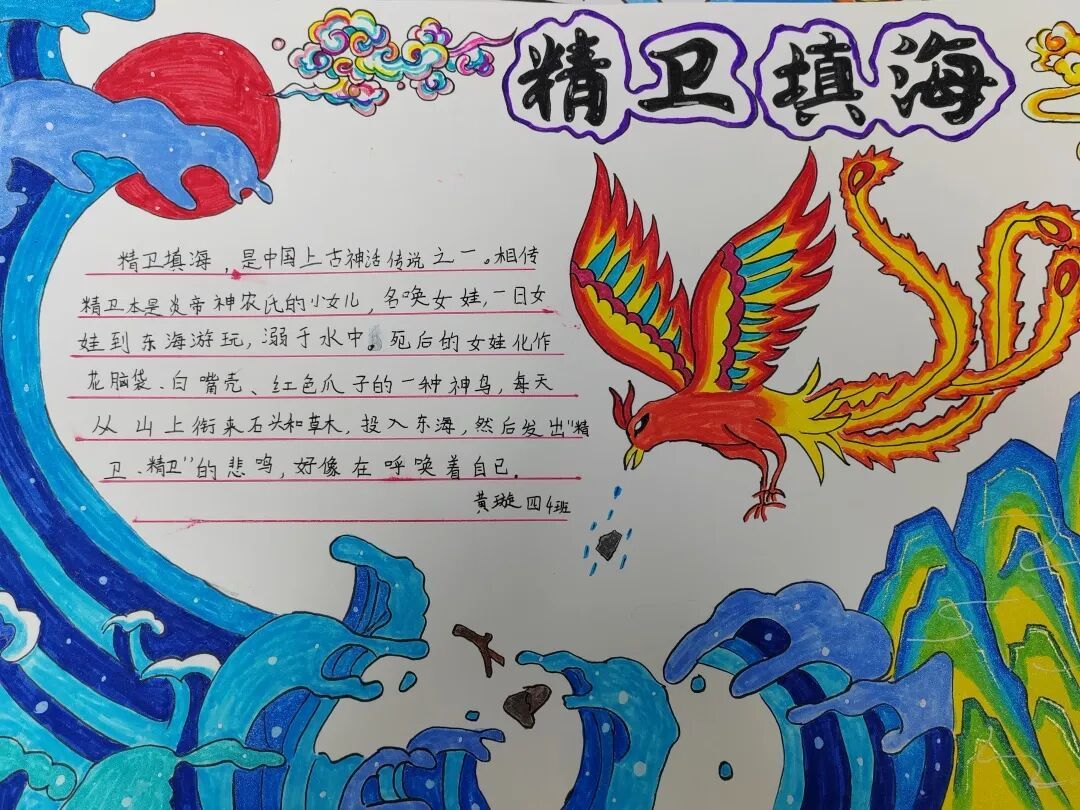 精卫填海
精卫填海,是中国上古神话传说之一。相传
精卫本是炎帝神农氏的小女儿,名唤女娃,一日女
娃到东海游玩,溺于水中。死后的女娃化作
花脑袋、白嘴壳、红色爪子的一种神鸟,每天
从山上衔来石头和草木,投入东海,然后发出“精
卫、精卫”的悲鸣,好像在呼唤着自己.
黄璇 四4班